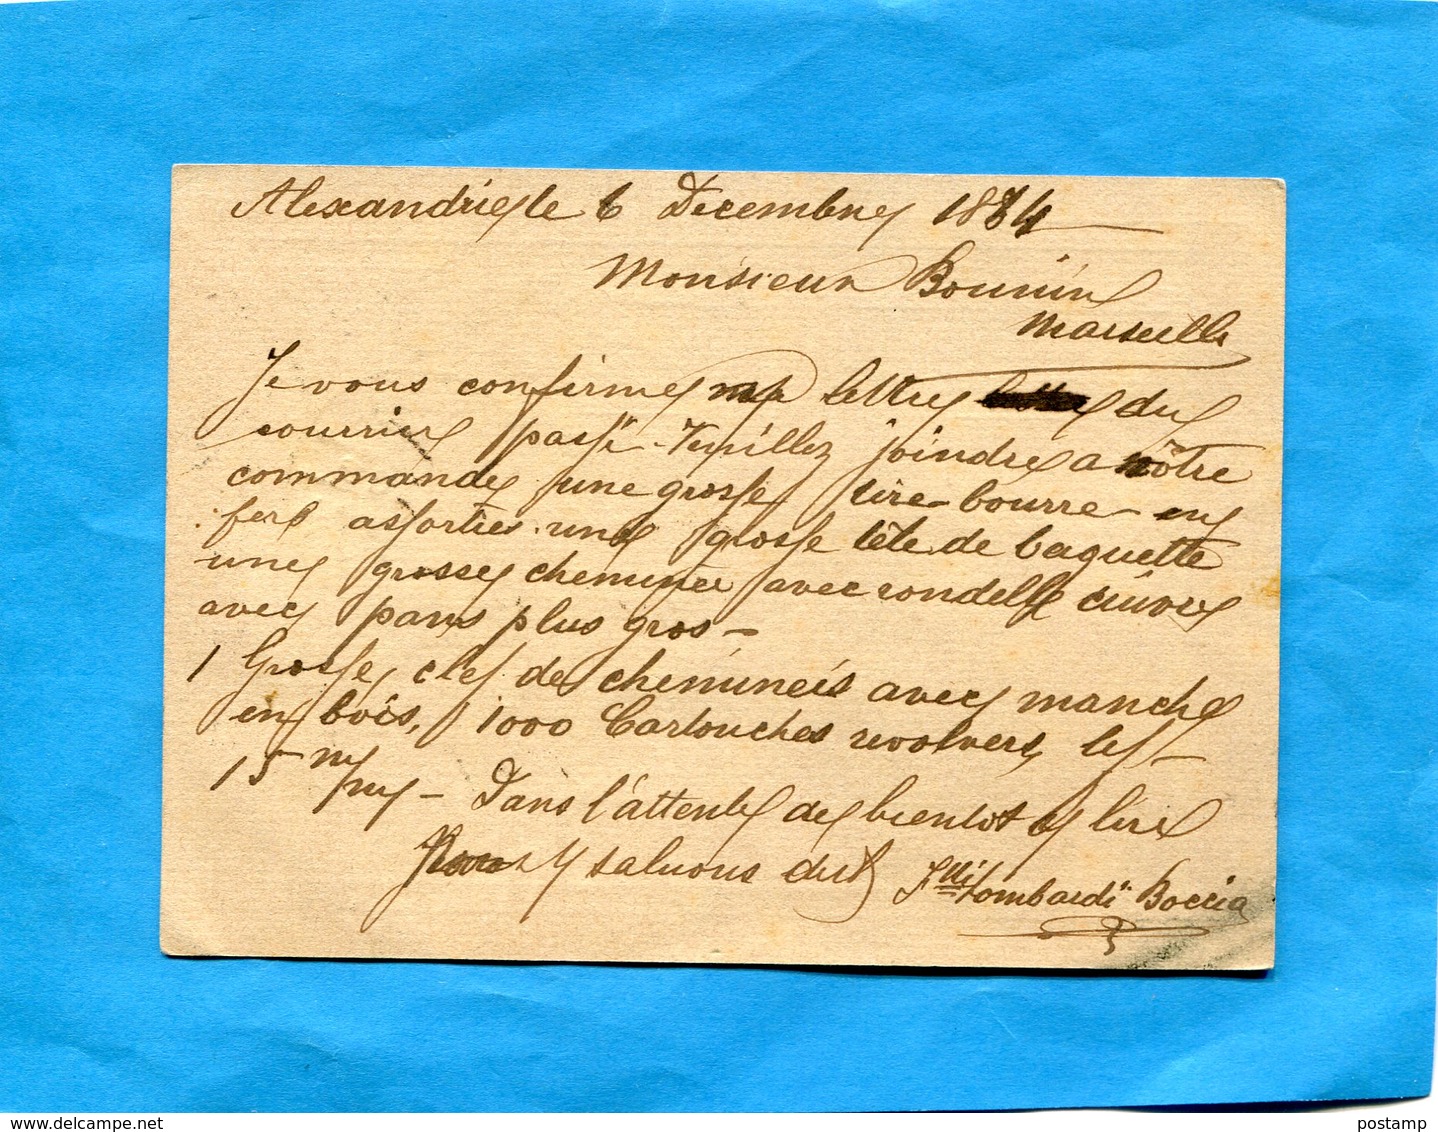 Alexandrie le 6 Decembre 1884
Monsieur Bounin
Marseille
Je vous confirme ma lettre du
courrier passé - Veuillez joindre a nôtre
commande une grosse tire-bourre en
fer assorties une grosse tête de baguette
une grosse cheminée avec rondelle cuivre
avec pans plus gros -
1 Grosse clef de cheminéis avec manche
en bois, 1000 Cartouches revolvers les
15 m/m - Dans l'attente de bientot lire
saluons dist
Flli Lombardi Boccia
postamp
postamp